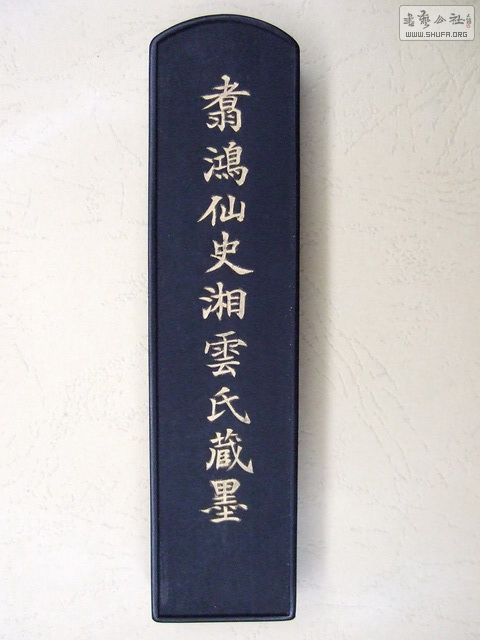 翥鴻仙史湘雲氏蔵墨
書藝公社
WWW.SHUFA.ORG